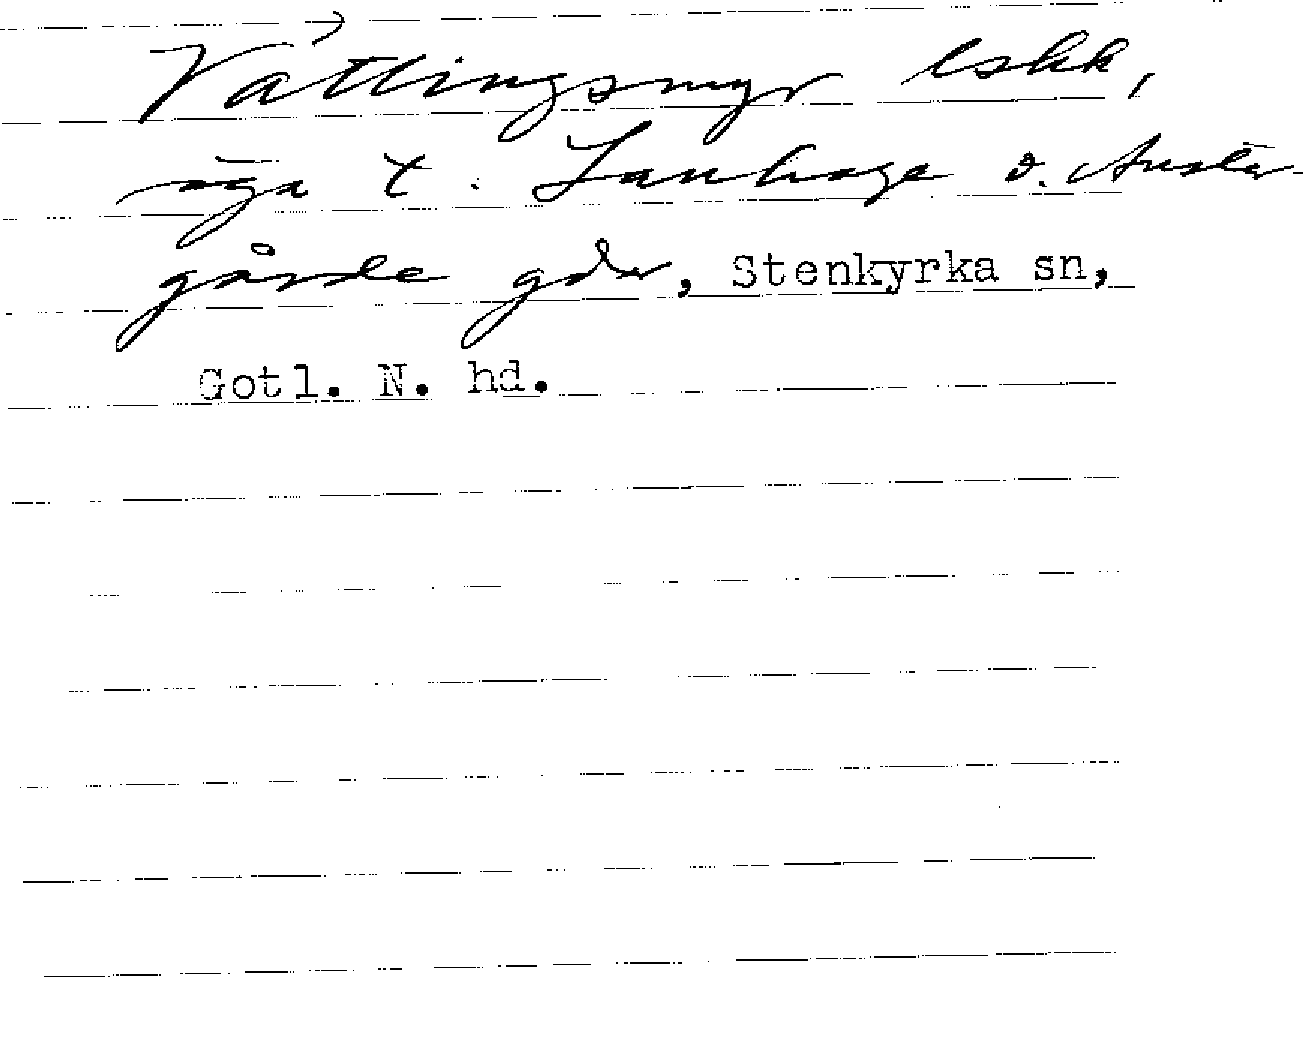 Vätlingsmyr lskk,
äga t. Lanhage o. Auster-
gårde gdr, Stenkyrka sn,
Gotl. N. hd.